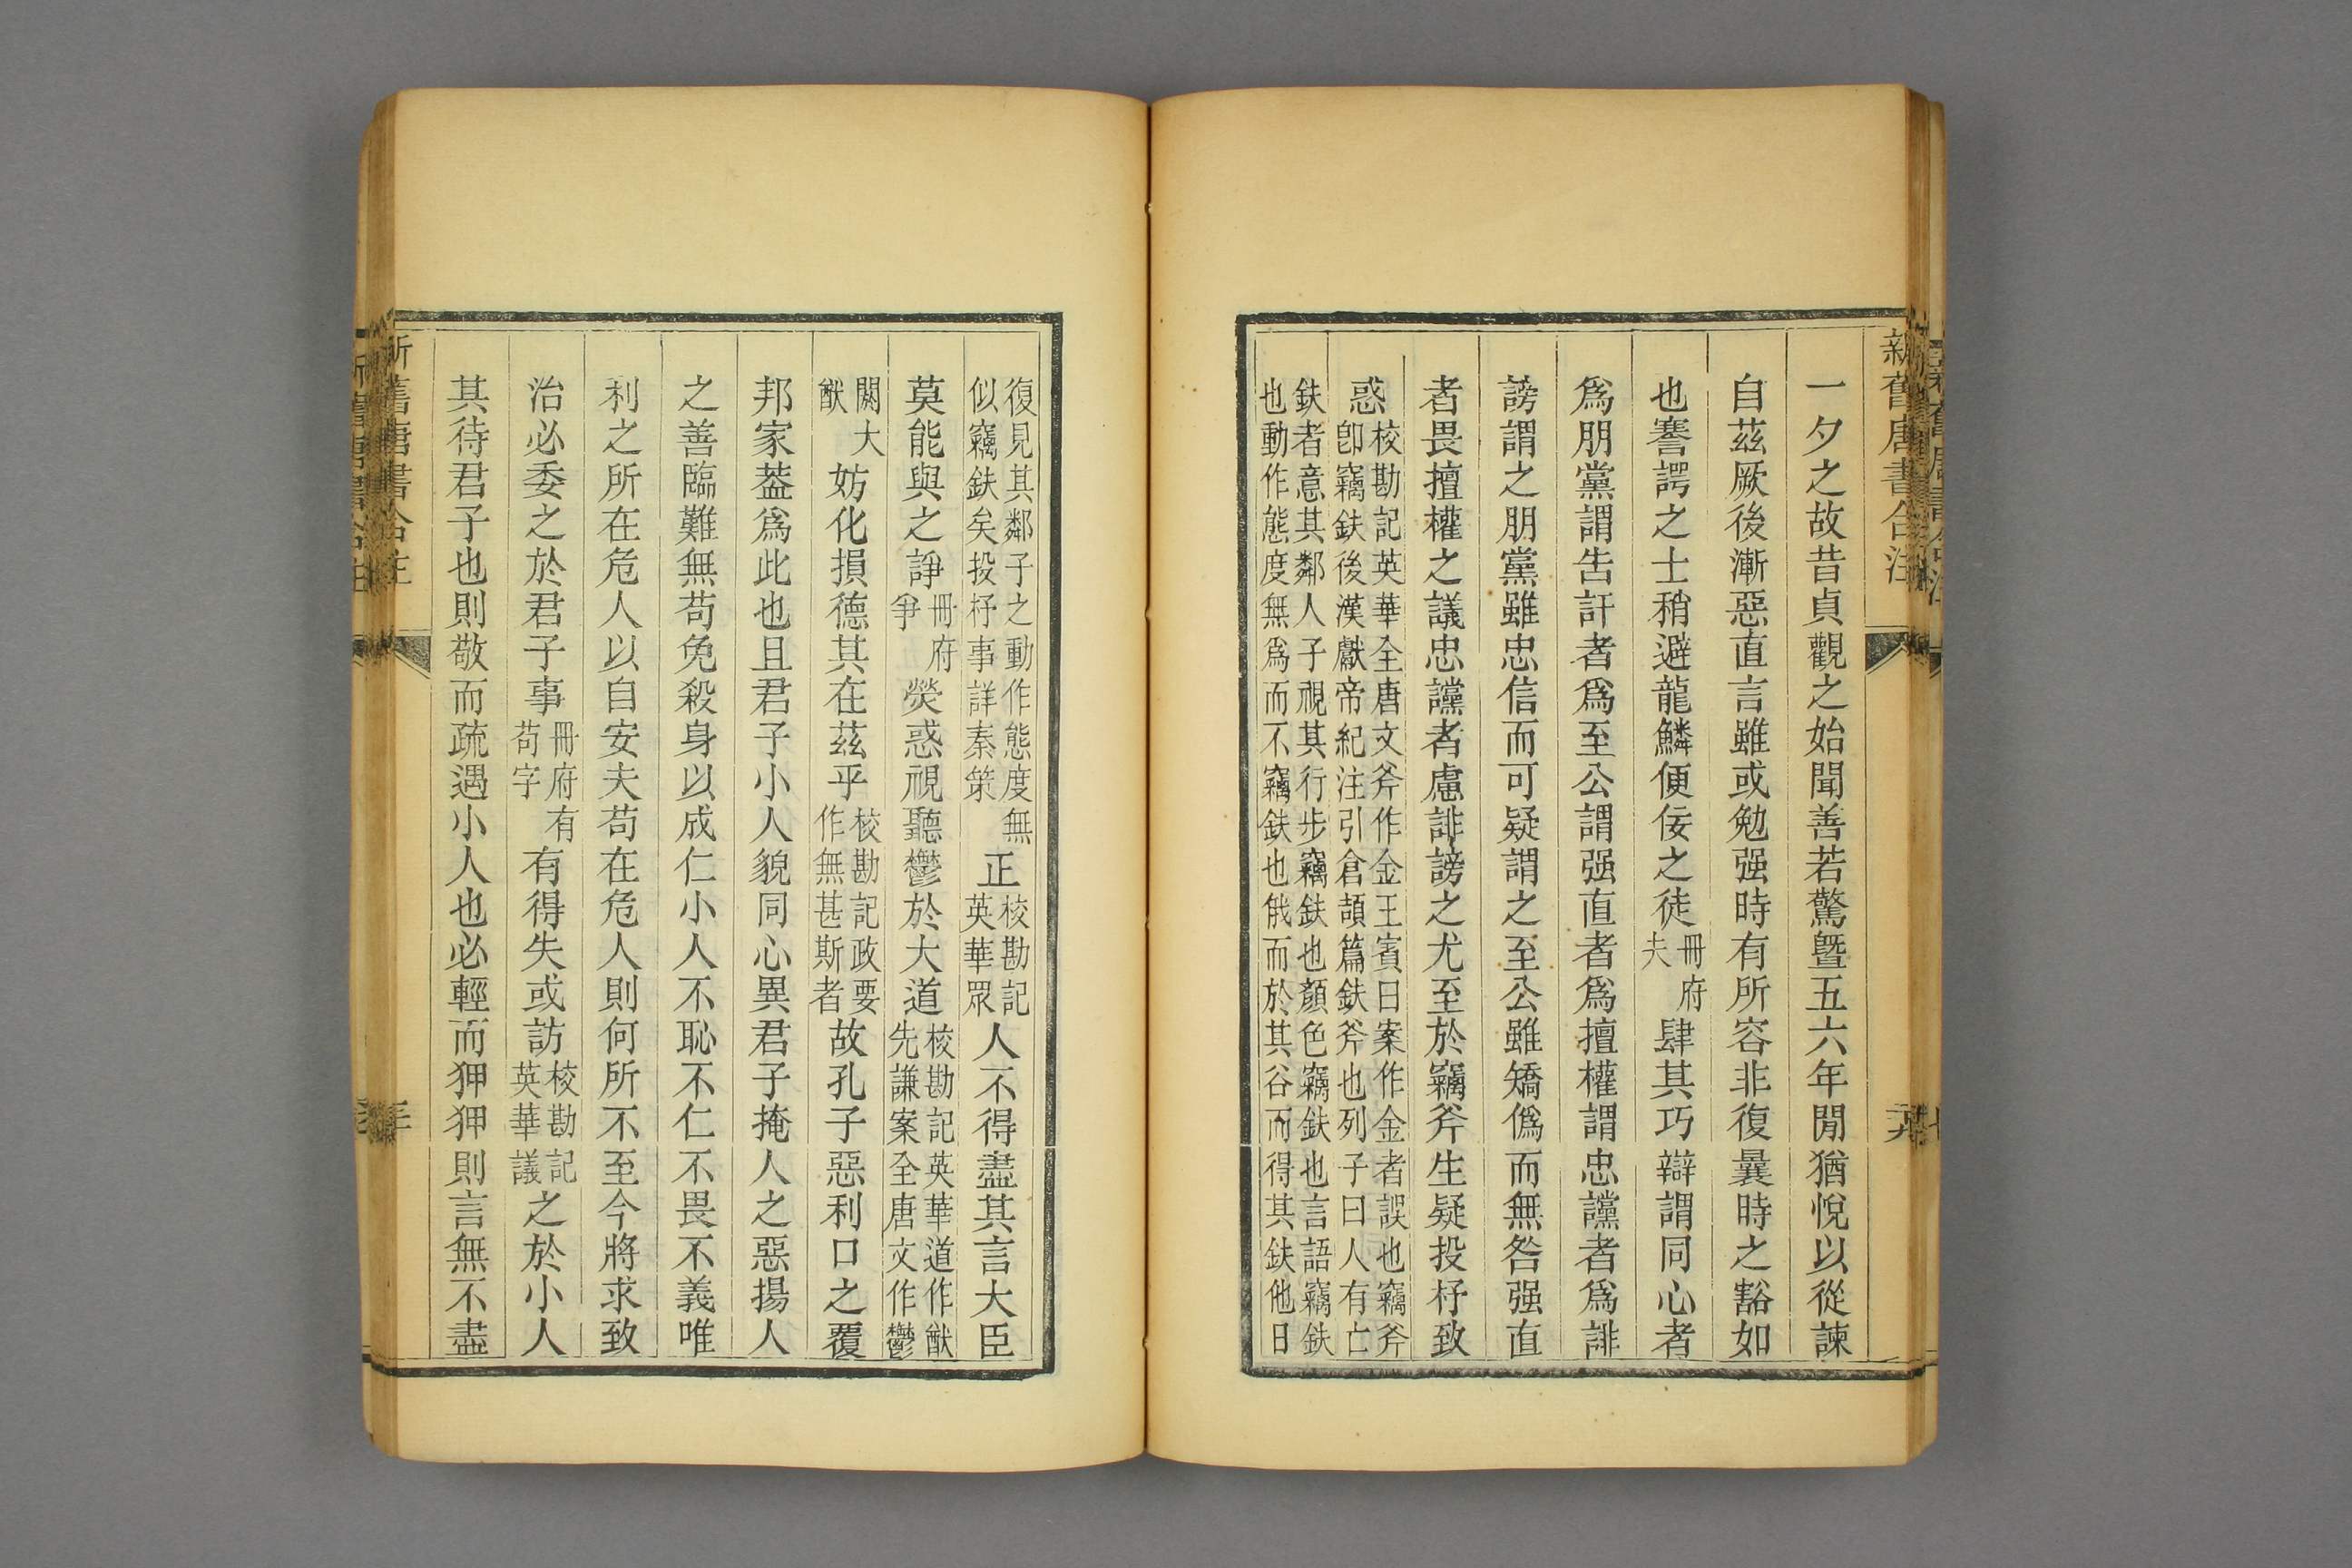 新舊唐書合注
一夕之故昔貞觀之始聞善若驚曁五六年閒猶悅以從諫
自茲厥後漸惡直言雖或勉强時有所容非復曩時之豁如
也謇諤之士稍避龍鱗便佞之徒冊府夫肆其巧辯謂同心者
爲朋黨謂吿訐者爲至公謂强直者爲擅權謂忠讜者爲誹
謗謂之朋黨雖忠信而可疑謂之至公雖矯僞而無咎强直
者畏擅權之議忠讜者慮誹謗之尤至於竊斧生疑投杼致
惑校勘記英華全唐文斧作金王賓曰案作金者誤也竊斧
卽竊鈇後漢獻帝紀注引倉頡篇鈇斧也列子曰人有亡
鈇者意其鄰人子視其行步竊鈇也顏色竊鈇也言語竊鈇
也動作態度無爲而不竊鈇也俄而於其谷而得其鈇他日
復見其鄰子之動作態度無
似竊鈇矣投杼事詳秦策
正校勘記英華眾人不得盡其言大臣
莫能與之諍冊府爭熒惑視聽鬱於大道校勘記英華道作猷先謙案全唐文作鬱
闕大猷妨化損德其在茲乎校勘記政要作無甚斯者故孔子惡利口之覆
邦家葢爲此也且君子小人貌同心異君子掩人之惡揚人
之善臨難無苟免殺身以成仁小人不恥不仁不畏不義唯
利之所在危人以自安夫苟在危人則何所不至今將求致
治必委之於君子事冊府有苟字有得失或訪校勘記英華議之於小人
其待君子也則敬而疏遇小人也必輕而狎狎則言無不盡
舊唐書合注